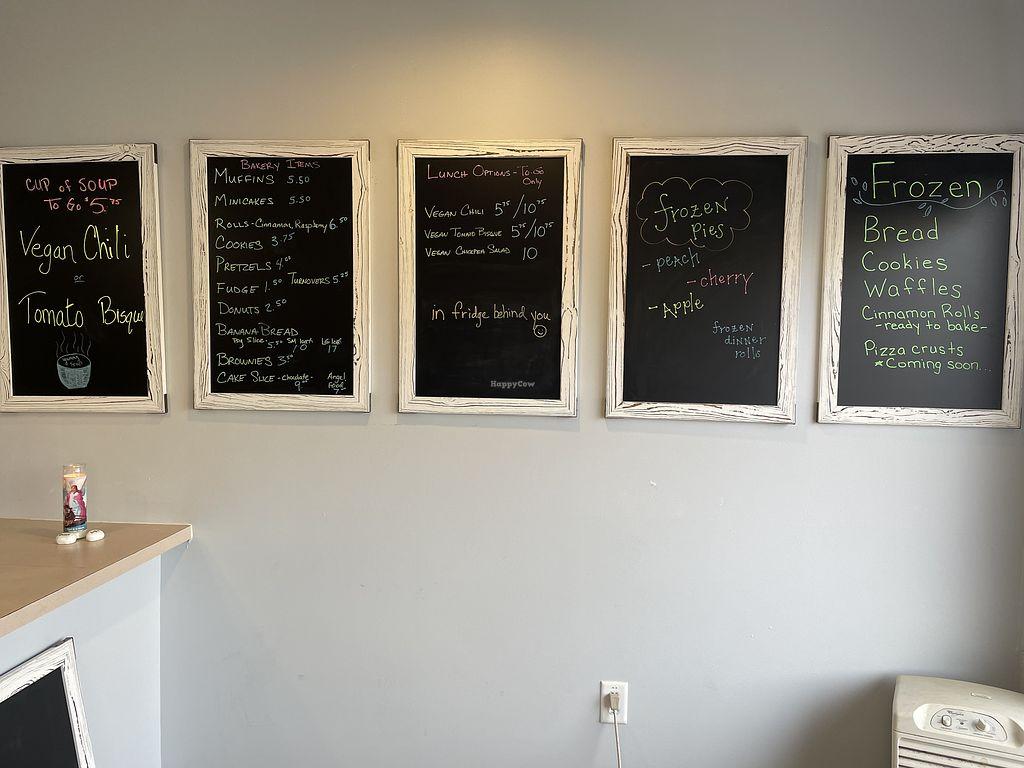 CUP of SOUP
To Go $5.75
Vegan Chili
or
Tomato Bisque
BAKERY ITEMS
MUFFINS 5.50
MINICAKES 5.50
ROLLS-Cinnamon, Raspberry 6.50
COOKIES 3.75
PRETZELS 4.00
TURNOVERS 5.25
FUDGE 1.50
DONUTS 2.50
BANANA BREAD
By Slice 5.50 SM loaf 10 LG loaf 17
BROWNIES 3.50
CAKE SLICE - chocolate - 9.00 Angel Food
LUNCH OPTIONS - To-Go
Only
VEGAN CHILI 5.75/10.75
VEGAN TOMATO BISQUE 5.75/10.75
VEGAN CHICKEN SALAD 10
in fridge behind you
HappyCow
frozen
pies
- peach
- cherry
- Apple
frozen
dinner
rolls
Frozen
Bread
Cookies
Waffles
Cinnamon Rolls
-ready to bake-
Pizza crusts
*Coming soon...